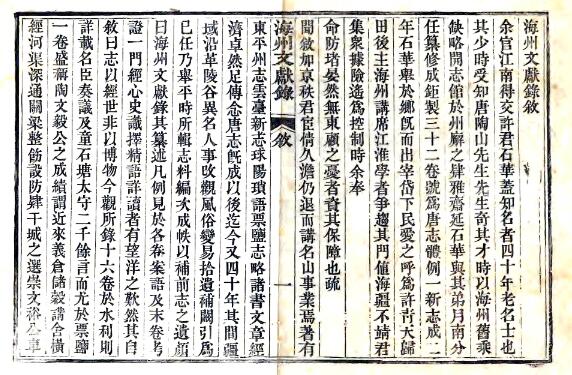 海州文獻錄敘
余官江南得交許君石華蓋知名者四十年老名士也
其少時受知唐陶山先生先生奇其才時以海州舊乘
缺略開志館於州廨之肆雅齋延石華與其弟月南分
任纂修成鉅製三十二卷號為唐志體例一新志成二
年石華舉於鄉旣而出宰岱下民愛之呼為許靑天歸
田後主海州講席江淮學者爭趨其門値海疆不靖君
集衆據險遙爲控制時余奉
命防堵晏然無東顧之憂者資其保障也疏
聞敘加京秩君臣情久澹仍退而講名山事業焉著有
海州文獻錄
敘
一
東平州志雲臺新志球陽瑣語票鹽志略諸書文章經
濟卓然足傳念唐志旣成以後迄今又四十年其間疆
域沿革陵谷異名人事攸觀風俗變易拾遺補闕引爲
己任乃舉平時所輯志料編次成帙以補前志之遺顏
曰海州文獻錄其纂述凡例見於各卷案語及末卷考
證一門經心史識擇精語詳讀者有望洋之歎然其自
敘曰志以經世非以博物今觀所錄十六卷於水利則
詳載名臣奏議及童石塘太守二千餘言而尤於票鹽
一卷盛稱陶文毅公之成績謂近來義倉儲穀講舍橫
經河渠深通關梁整飭設防肆干城之選崇文裕公車